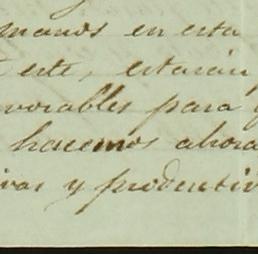 manos en esta
este, estarán
vorables para
hacemos ahora
ivas y productiv